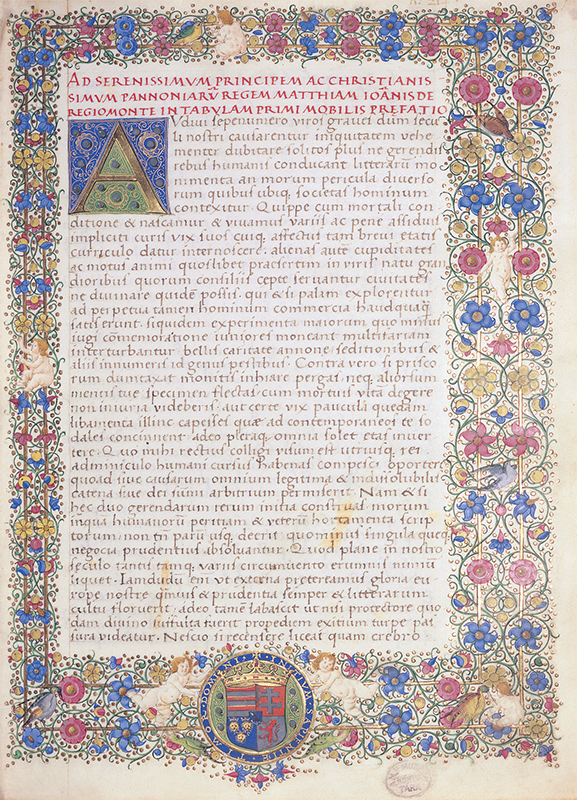 AD SERENISSIMVM PRINCIPEM AC CHRISTIANIS
SIMVM PANNONIARŪ REGEM MATTHIAM IOĀNIS DE
REGIOMONTE IN TABVLAM PRIMI MOBILIS PREFATIO
Audiui sepenumero viros graves dum secu
li nostri causarentur iniquitatem vehe
menter dubitare solitos plus ne gerendis
rebus humanis conducant litterarū mo
nimenta an morum pericula diverso
rum quibus cūq; societas hominum
contexitur. Quippe cum mortali con
ditione & nascamur & vivamus variis ac pene assiduis
impliciti curis vix suos cuiq; affectus tam brevi etatis
curriculo datur internoscere. alienas autē cupiditates
ac motus animi quoslibet praesertim in viris natu gran
dioribus quorum consiliis cepte servantur civitates
ne divinare quidē possis. qui & si palam explorentur
ad perpetua tamen hominum commercia haudquaq̄
satis erunt. siquidem experimenta maiorum quo minus
iugi comemoratione iuniores moneant multifariam
interturbantur. bellis caritate annone seditionibus &
aliis innumeris id genus pestibus. Contra vero si prisco
rum dumtaxat monitis inhiare pergas. neq; aliorsum
mentis tue specimen flectas cum mortuis vitā degere
non iniuria videberis. aut certe vix paucula quedam
libamenta illinc capeises quae ad contemporaneos te so
dales concinnent. adeo pleraq; omnia solet etas inver
tere. Quo mihi rectius colligi visum est utriusq; rei
adminiculo humani cursus habenas compesci oportere
quoad sive causarum omnium legitima & indissolubilis
catena sive dei summi arbitrium permiserit. Nam & si
hec duo gerendarum rerum instra constituāt. morum
inquā humanorum peritiam & veterū hortamenta scrip
torum. non tn̄ parū usq; decrit quominus singula queq;
negocia prudentius absolvantur. Quod plane in nostro
seculo tantis tamq; variis circumvento erumnis nimiū
liquet. Iamdudū em̄ ut externa pretereamus gloria eu
rope nostre qīmus & prudentia semper & litterarum
cultu floruerit. adeo tamē labascit ut nisi protectore quo
dam divino suffulta fuerit propediem exitium turpe pas
sura videatur. Nescio si recensere liceat quam crebro